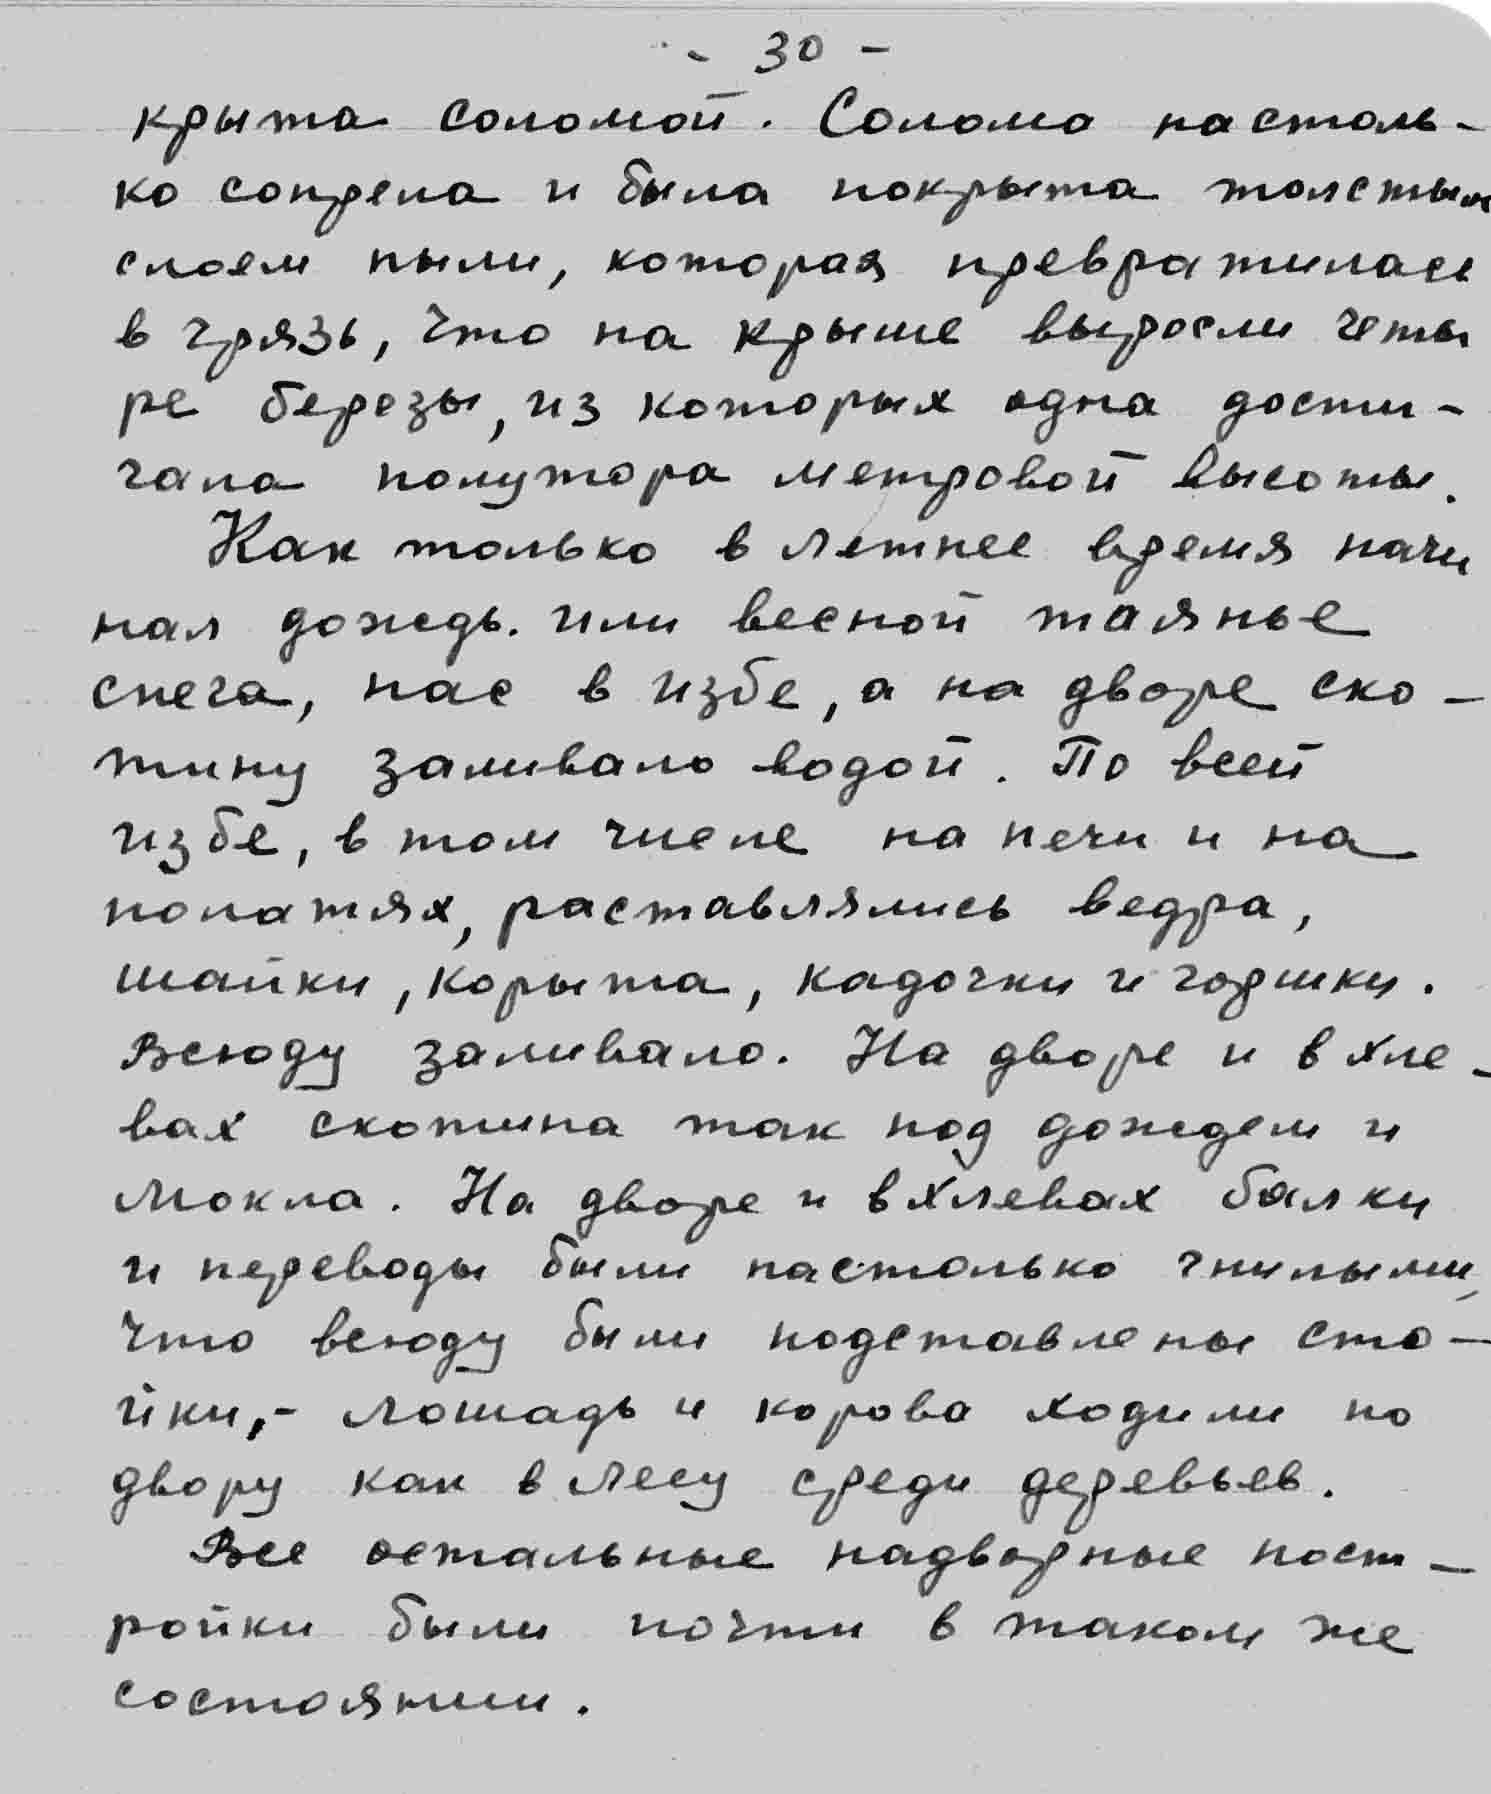 - 30 -
крыта соломой. Солома настоль-
ко сопрела и была покрыта толстым
слоем пыли, которая превратилась
в грязь, что на крыше выросли четы
ре березы, из которых одна дости-
гала полутора метровой высоты.
Как только в летнее время начи
нал дождь. или весной таянье
снега, нас в избе, а на дворе ско-
тину заливало водой. По всей
избе, в том числе на печи и на
полатях, раставлялись ведра,
шайки, корыта, кадочки и горшки.
Всюду заливало. На дворе и в хле-
вах скотина так под дождем и
мокла. На дворе и в хлевах балки
и переводы были настолько гнилыми,
что всюду были подставлены сто-
йки,- лошадь и корова ходили по
двору как в лесу среди деревьев.
Все остальные надворные пост-
ройки были почти в таком же
состоянии.